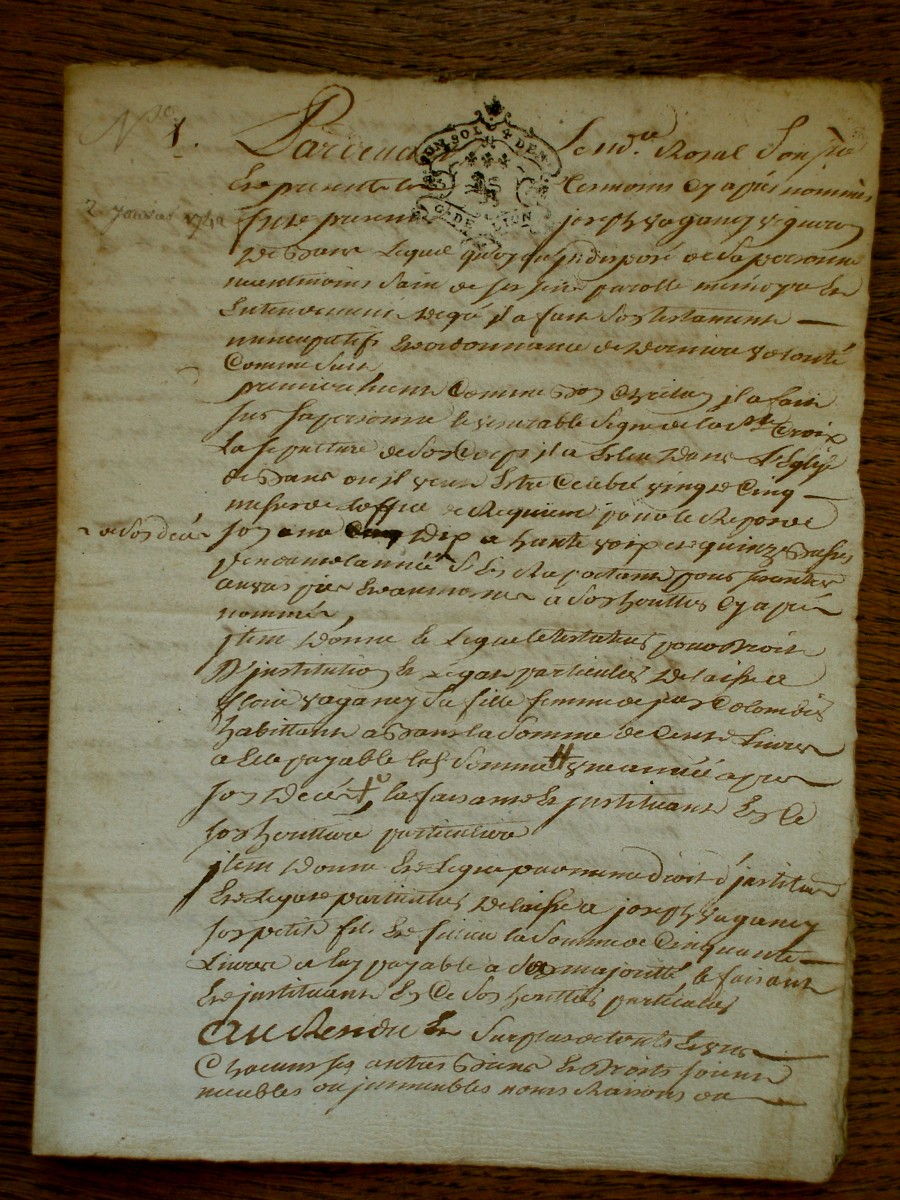 N° 1.
Pardevant le no.re Royal Soussigné
et presents les tesmoins cy apres nommés
2 janvier 1742
fut present joseph vaganey vigneron
UN SOL
DEN
G. DE LION
de lequel quoy qu'jndisposé de sa personne
neantmoins sain de ses sens parolle memoire et
Entendement de gré jl a fait son testament
nuncupatif et ordonnance de derniere volonté
Comme suit
premierement Comme bon Chrétien jl a fait
sur sa personne le venerable signe de la S.te Croix
La sepulture de son Corps jl a Esleu dans L'Eglise
de ou jl veut Estre Celebré vingt Cinq
messes de Requiem pour le Repos de
son ame dix a haute voix et quinze basses
de son decé
pendant l'année S'En Raportant pour
aux et aumosnes a son herittier Cy apres
nommé,
jtem donne et Legue le testateur pour droit
D'jnstitution et Legat particulier delaisse a
vaganey sa fille femme de Colombet
habittant a la somme de Cent Livres
a Elle payable lad. somme une année apres
son decé la faisant et jnstituant En Ce
son herittiere particuliere
jtem donne et Legue par meme droit d'jnstitution
et Legat particulier delaisse a joseph vaganey
son petit fils et filleul la somme de Cinquante
Livres a luy payable a sa majorité le faisant
et jnstituant En Ce son herittier particulier
Au Residu et surplus de touts et uns
Chacuns ses autres biens et Droits soient
meubles ou jmmeubles noms Raisons ou